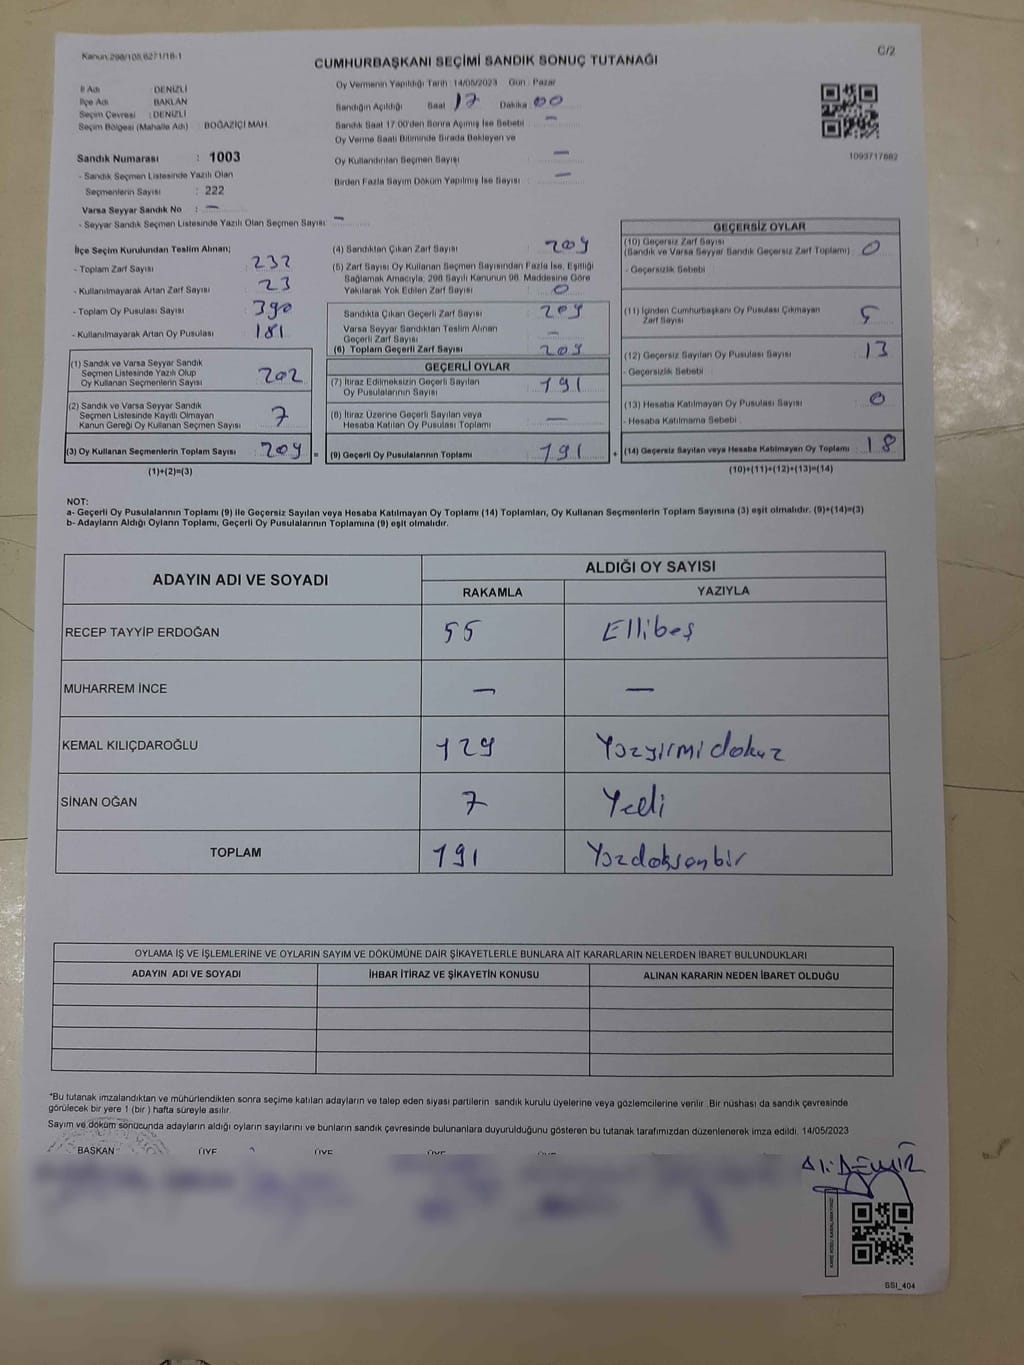 Kanun:298/105,6271/18-1
C/2
CUMHURBAŞKANI SEÇİMİ SANDIK SONUÇ TUTANAĞI
İl Adı : DENİZLİ
İlçe Adı : BAKLAN
Seçim Çevresi : DENİZLİ
Seçim Bölgesi (Mahalle Adı) : BOĞAZİÇİ MAH.
Sandık Numarası : 1003
- Sandık Seçmen Listesinde Yazılı Olan
Seçmenlerin Sayısı : 222
Varsa Seyyar Sandık No : —
- Seyyar Sandık Seçmen Listesinde Yazılı Olan Seçmen Sayısı : —
Oy Vermenin Yapıldığı Tarih : 14/05/2023 Gün : Pazar
Sandığın Açıldığı Saat 17 Dakika 00
Sandık Saat 17:00'den Sonra Açımış İse Sebebi : —
Oy Verme Saati Bitiminde Sırada Bekleyen ve
Oy Kullandırılan Seçmen Sayısı : —
Birden Fazla Sayım Döküm Yapılmış İse Sayısı : —
1093717682
İlçe Seçim Kurulundan Teslim Alınan;
- Toplam Zarf Sayısı : 232
- Kullanılmayarak Artan Zarf Sayısı : 23
- Toplam Oy Pusulası Sayısı : 390
- Kullanılmayarak Artan Oy Pusulası : 181
(1) Sandık ve Varsa Seyyar Sandık
Seçmen Listesinde Yazılı Olup
Oy Kullanan Seçmenlerin Sayısı : 202
(2) Sandık ve Varsa Seyyar Sandık
Seçmen Listesinde Kayıtlı Olmayan
Kanun Gereği Oy Kullanan Seçmen Sayısı : 7
(3) Oy Kullanan Seçmenlerin Toplam Sayısı : 209
(1)+(2)=(3)
(4) Sandıktan Çıkan Zarf Sayısı : 209
(5) Zarf Sayısı Oy Kullanan Seçmen Sayısından Fazla İse, Eşitliği
Sağlamak Amacıyla; 298 Sayılı Kanunun 98. Maddesine Göre
Yakılarak Yok Edilen Zarf Sayısı : 0
Sandıkta Çıkan Geçerli Zarf Sayısı : 209
Varsa Seyyar Sandıktan Teslim Alınan
Geçerli Zarf Sayısı : —
(6) Toplam Geçerli Zarf Sayısı : 209
GEÇERLİ OYLAR
(7) İtiraz Edilmeksizin Geçerli Sayılan
Oy Pusulalarının Sayısı : 191
(8) İtiraz Üzerine Geçerli Sayılan veya
Hesaba Katılan Oy Pusulası Toplamı : —
= (9) Geçerli Oy Pusulalarının Toplamı : 191
GEÇERSİZ OYLAR
(10) Geçersiz Zarf Sayısı
(Sandık ve Varsa Seyyar Sandık Geçersiz Zarf Toplamı) : 0
- Geçersizlik Sebebi
(11) İçinden Cumhurbaşkanı Oy Pusulası Çıkmayan
Zarf Sayısı : 5
(12) Geçersiz Sayılan Oy Pusulası Sayısı : 13
- Geçersizlik Sebebi
(13) Hesaba Katılmayan Oy Pusulası Sayısı : 0
- Hesaba Katılmama Sebebi :
+ (14) Geçersiz Sayılan veya Hesaba Katılmayan Oy Toplamı : 18
(10)+(11)+(12)+(13)=(14)
NOT:
a- Geçerli Oy Pusulalarının Toplamı (9) ile Geçersiz Sayılan veya Hesaba Katılmayan Oy Toplamı (14) Toplamları, Oy Kullanan Seçmenlerin Toplam Sayısına (3) eşit olmalıdır. (9)+(14)=(3)
b- Adayların Aldığı Oyların Toplamı, Geçerli Oy Pusulalarının Toplamına (9) eşit olmalıdır.
ADAYIN ADI VE SOYADI
ALDIĞI OY SAYISI
RAKAMLA YAZIYLA
RECEP TAYYİP ERDOĞAN 55 Ellibeş
MUHARREM İNCE — —
KEMAL KILIÇDAROĞLU 129 Yüzyirmi dokuz
SİNAN OĞAN 7 Yedi
TOPLAM 191 Yüzdoksanbir
OYLAMA İŞ VE İŞLEMLERİNE VE OYLARIN SAYIM VE DÖKÜMÜNE DAİR ŞİKAYETLERLE BUNLARA AİT KARARLARIN NELERDEN İBARET BULUNDUKLARI
ADAYIN ADI VE SOYADI İHBAR İTİRAZ VE ŞİKAYETİN KONUSU ALINAN KARARIN NEDEN İBARET OLDUĞU
*Bu tutanak imzalandıktan ve mühürlendikten sonra seçime katılan adayların ve talep eden siyasi partilerin sandık kurulu üyelerine veya gözlemcilerine verilir. Bir nüshası da sandık çevresinde
görülecek bir yere 1 (bir ) hafta süreyle asılır.
Sayım ve döküm sonucunda adayların aldığı oyların sayılarını ve bunların sandık çevresinde bulunanlara duyurulduğunu gösteren bu tutanak tarafımızdan düzenlenerek imza edildi. 14/05/2023
BAŞKAN ÜYE ÜYE ÜYE ÜYE
Ali DEMİR
SSI_404